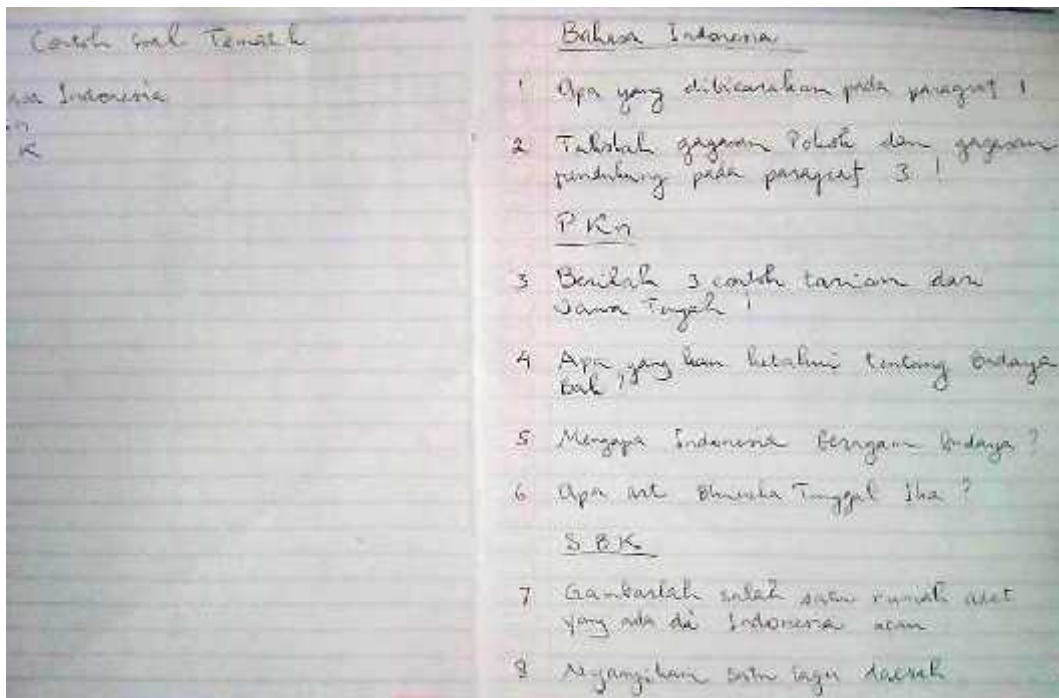 Contoh soal Tematik
asa Indonesia
n
K
Bahasa Indonesia
1 Apa yang dibicarakan pada paragraf 1
2 Tulislah gagasan Pokok dan gagasan
pendukung pada paragraf 3 !
PKn
3 Berilah 3 contoh tarian dari
Jawa Tengah !
4 Apa yang kau ketahui tentang budaya
5 Mengapa Indonesia beragam budaya ?
6 Apa arti Bhineka Tunggal Ika ?
SBK
7 Gambarlah salah satu rumah adat
yang ada di Indonesia
8 Nyanyikan satu lagu daerah